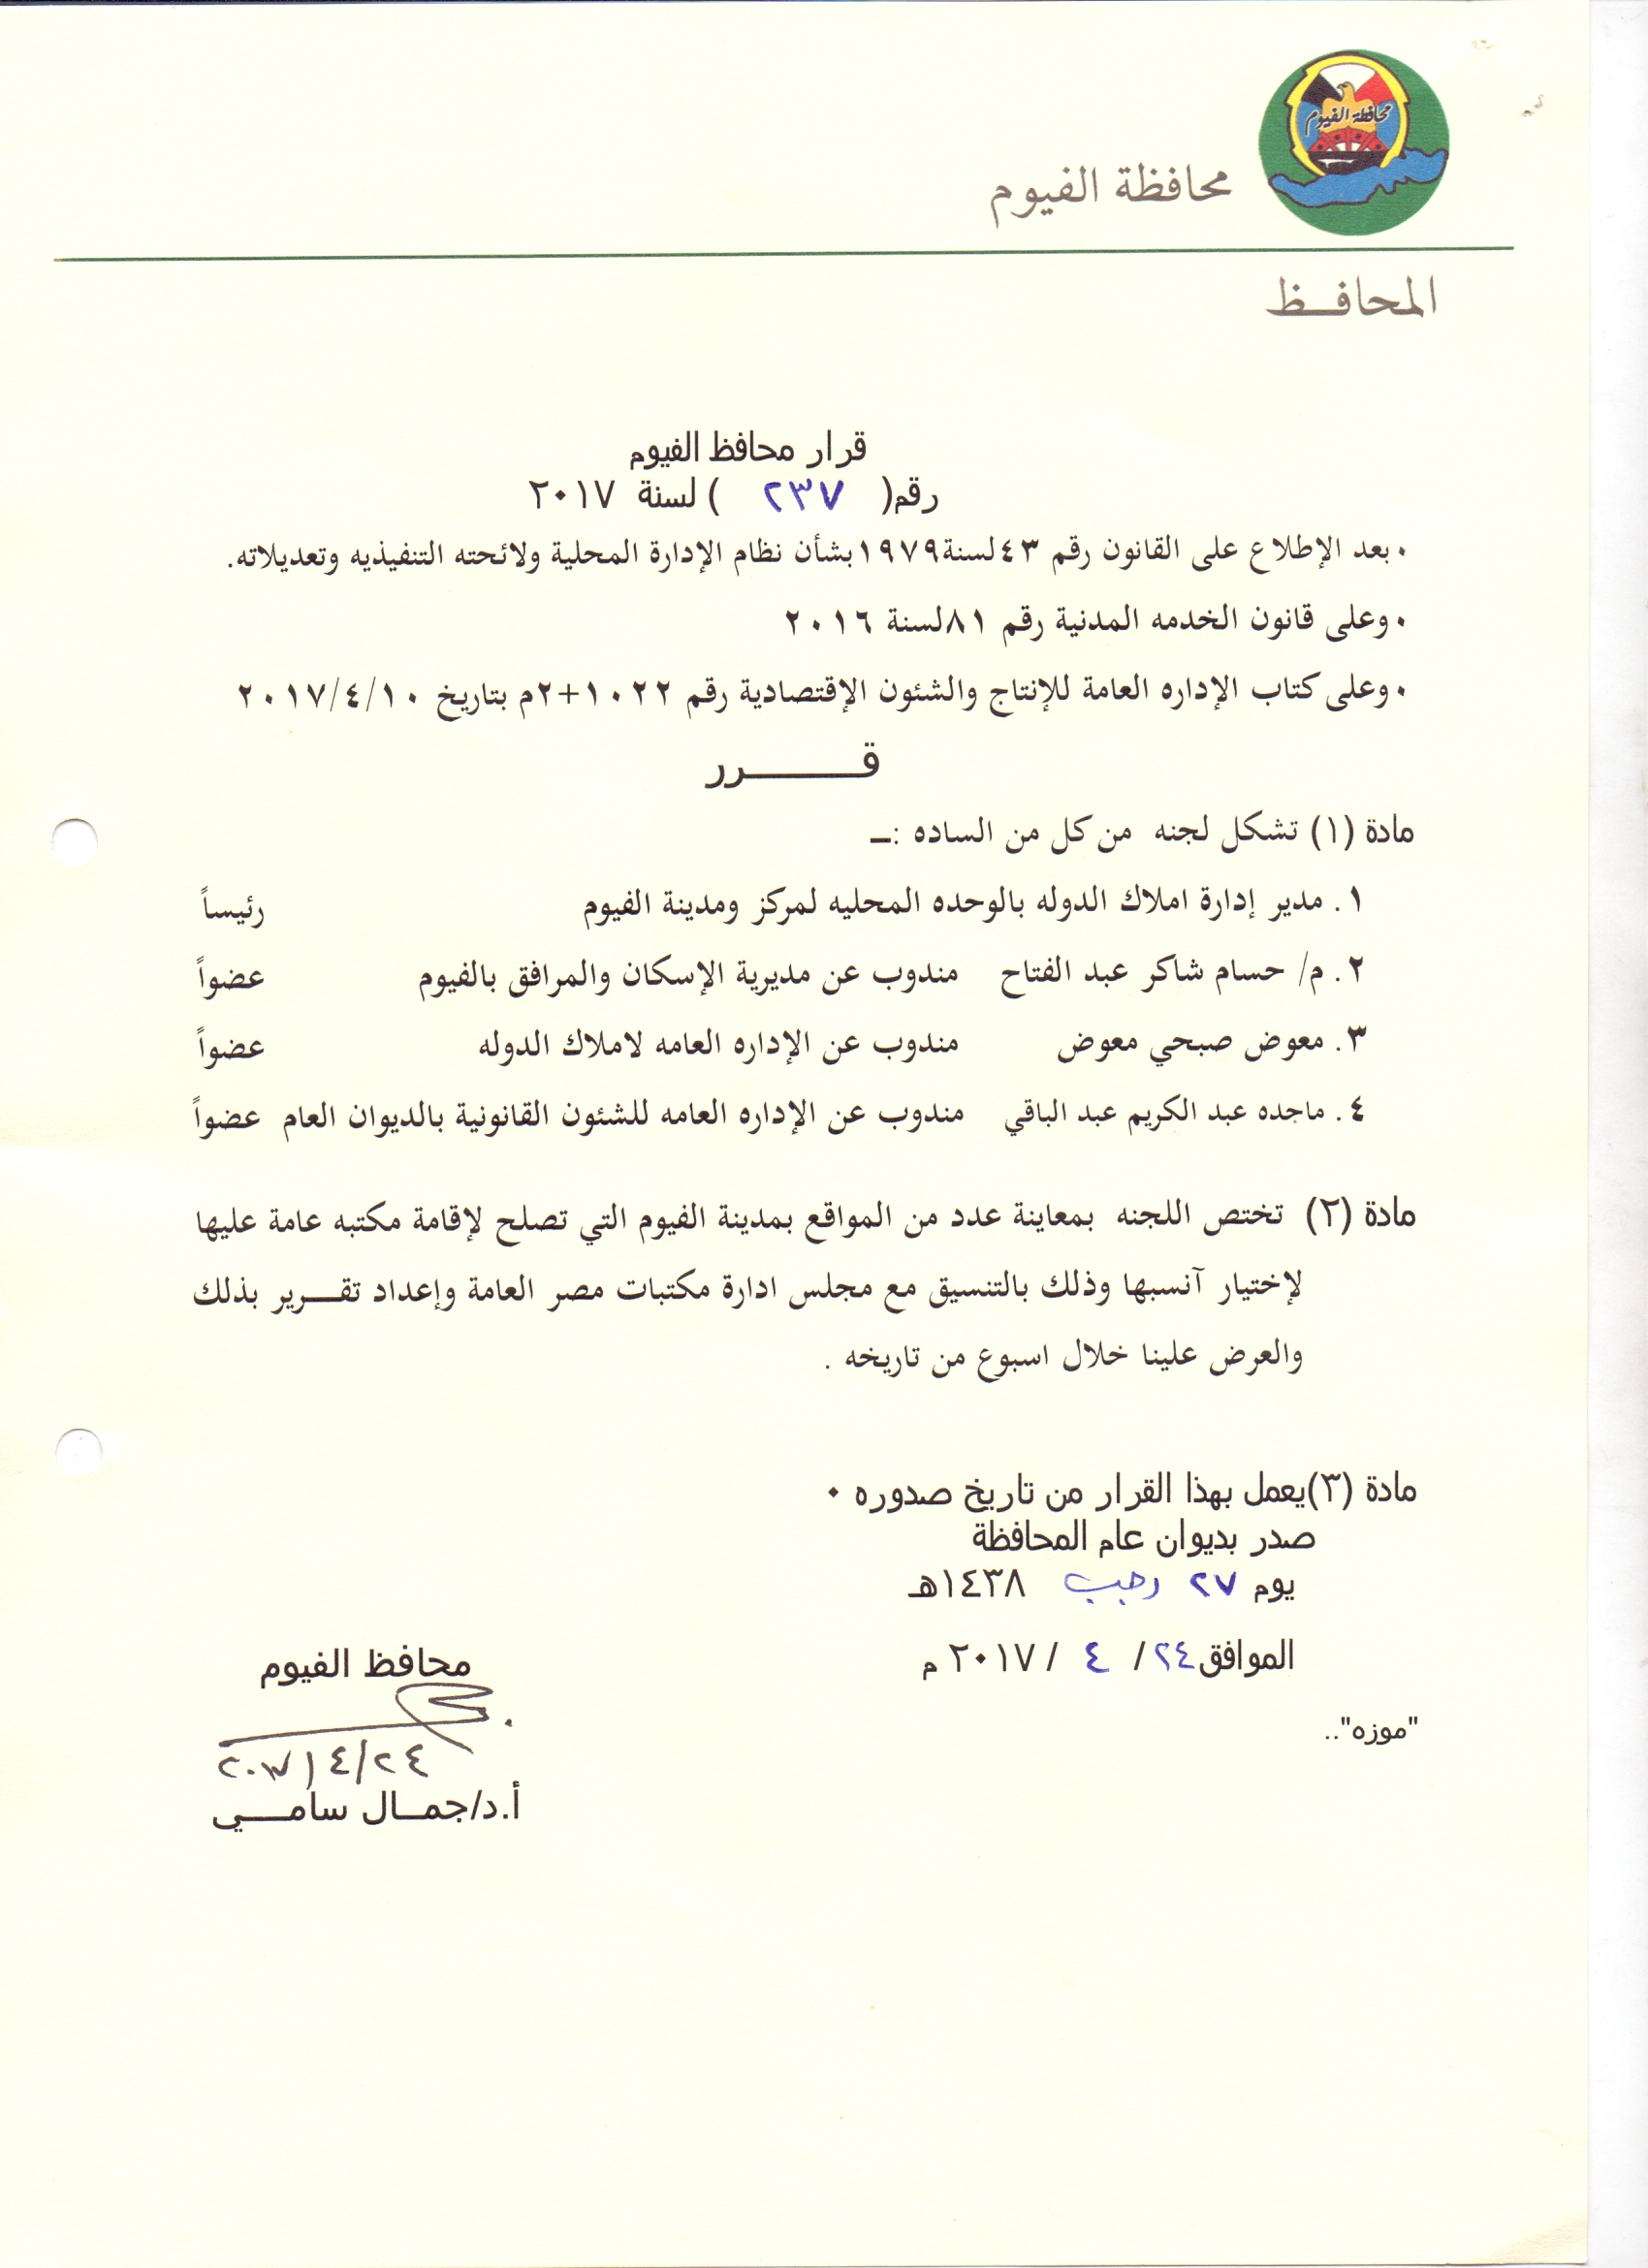 محافظة الفيوم
محافظة الفيوم
المحافـــظ
قرار محافظ الفيوم
رقم( ٢٣٧ ) لسنة ٢٠١٧
• بعد الإطلاع على القانون رقم ٤٣ لسنة ١٩٧٩ بشأن نظام الإدارة المحلية ولائحته التنفيذيه وتعديلاته.
• وعلى قانون الخدمه المدنية رقم ٨١ لسنة ٢٠١٦
• وعلى كتاب الإداره العامة للإنتاج والشئون الإقتصادية رقم ١٠٢٢+٢م بتاريخ ٢٠١٧/٤/١٠
قــــــــرر
مادة (١) تشكل لجنه من كل من الساده :ــ
١. مدير إدارة املاك الدوله بالوحده المحليه لمركز ومدينة الفيوم رئيساً
٢. م/ حسام شاكر عبد الفتاح مندوب عن مديرية الإسكان والمرافق بالفيوم عضواً
٣. معوض صبحي معوض مندوب عن الإداره العامه لاملاك الدوله عضواً
٤. ماجده عبد الكريم عبد الباقي مندوب عن الإداره العامه للشئون القانونية بالديوان العام عضواً
مادة (٢) تختص اللجنه بمعاينة عدد من المواقع بمدينة الفيوم التي تصلح لإقامة مكتبه عامة عليها
لإختيار آنسبها وذلك بالتنسيق مع مجلس ادارة مكتبات مصر العامة وإعداد تقـــرير بذلك
والعرض علينا خلال اسبوع من تاريخه .
مادة (٣)يعمل بهذا القرار من تاريخ صدوره •
صدر بديوان عام المحافظة
يوم ٢٧ رجب ١٤٣٨هـ
الموافق ٢٤/ ٤ / ٢٠١٧ م
محافظ الفيوم
٢٠١٧/٤/٢٤
أ.د/جمــال سامــــي
"موزه"..